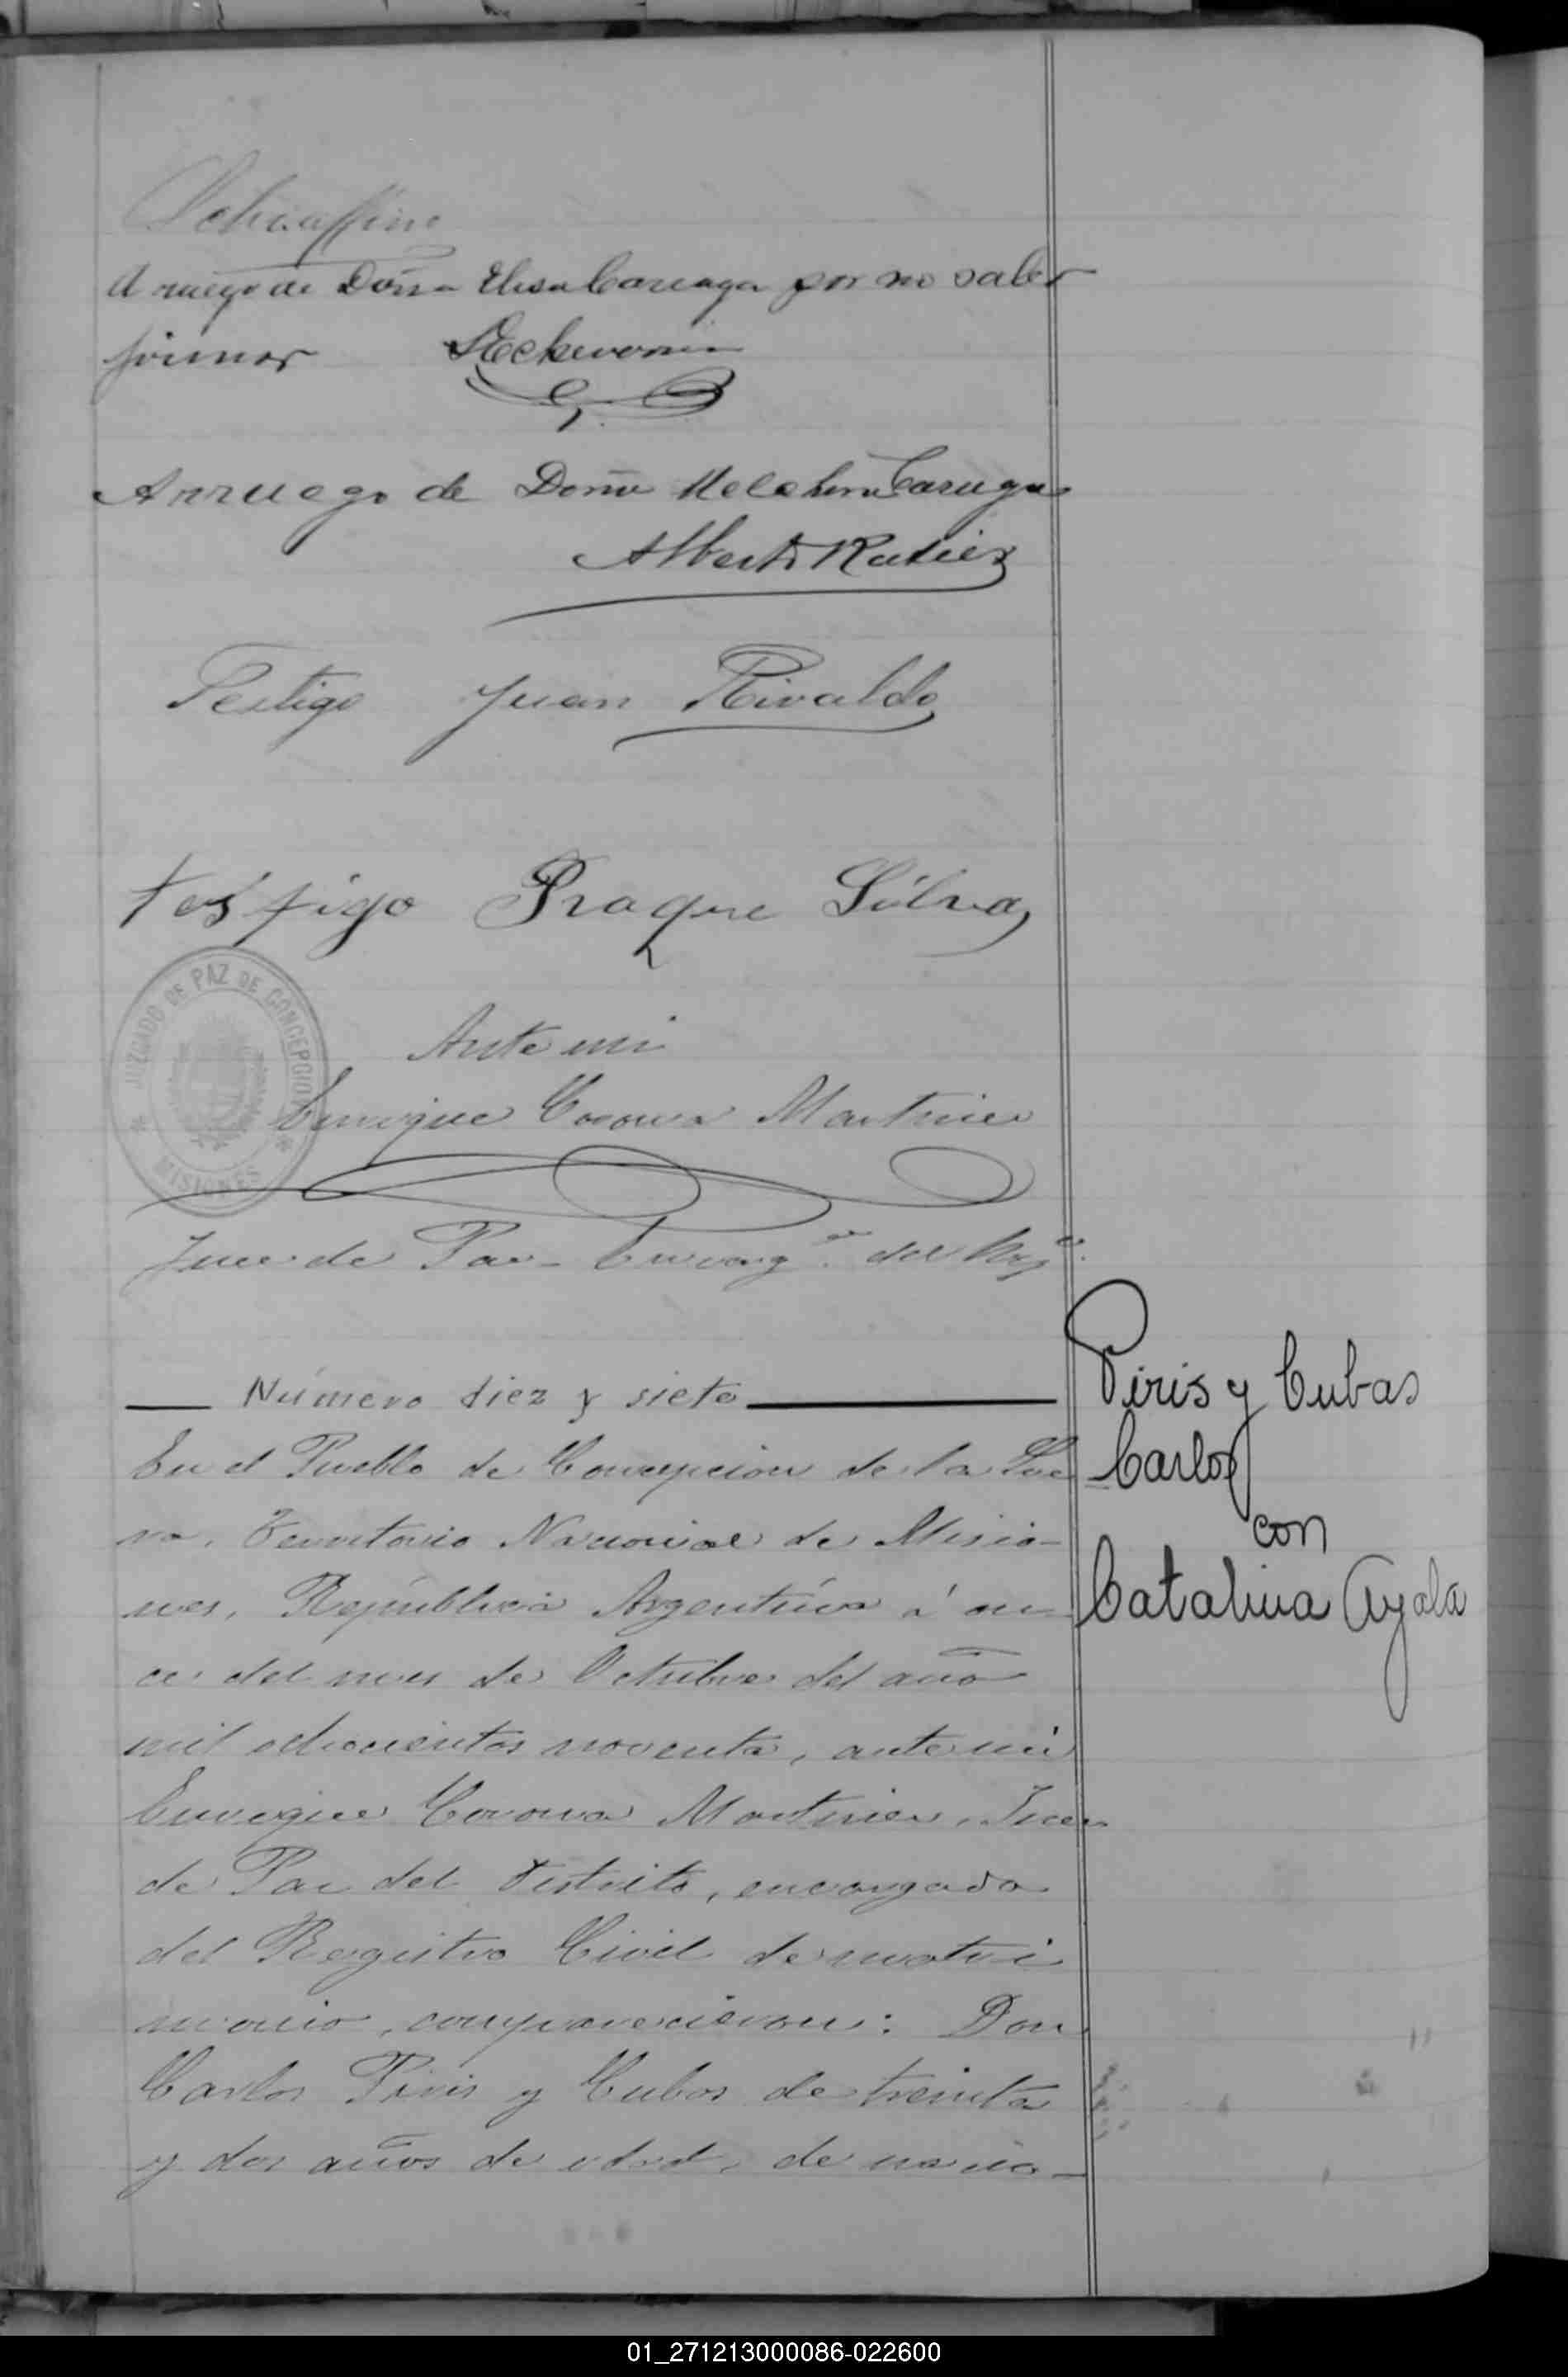 Schiaffino
A ruego de Doña Elisa Careaga por no saber
firmar Echeverria
Arruego de Doña Melchora Carega
Alberto Ratier
Testigo Juan Rivaldo
testigo Roque Silva
JUZGADO DE PAZ DE CONCEPCION
MISIONES
Ante mi
Enrique Corona Martinez
Juez de Paz - Encargo. del Rego.
Número diez y siete
En el Pueblo de Concepcion de la Sier
ra, Territorio Nacional de Misio-
nes, República Argentina á on-
ce del mes de Octubre del año
mil ochocientos noventa, ante mi
Enrique Corona Martinez, Juez
de Paz del Distrito, encargado
del Registro Civil de matri
monio, comparecieron: Don
Carlos Piris y Cubas de treinta
y dos años de edad, de nacio-
Piris y Cubas
Carlos
con
Catalina Ayala
01_271213000086-022600